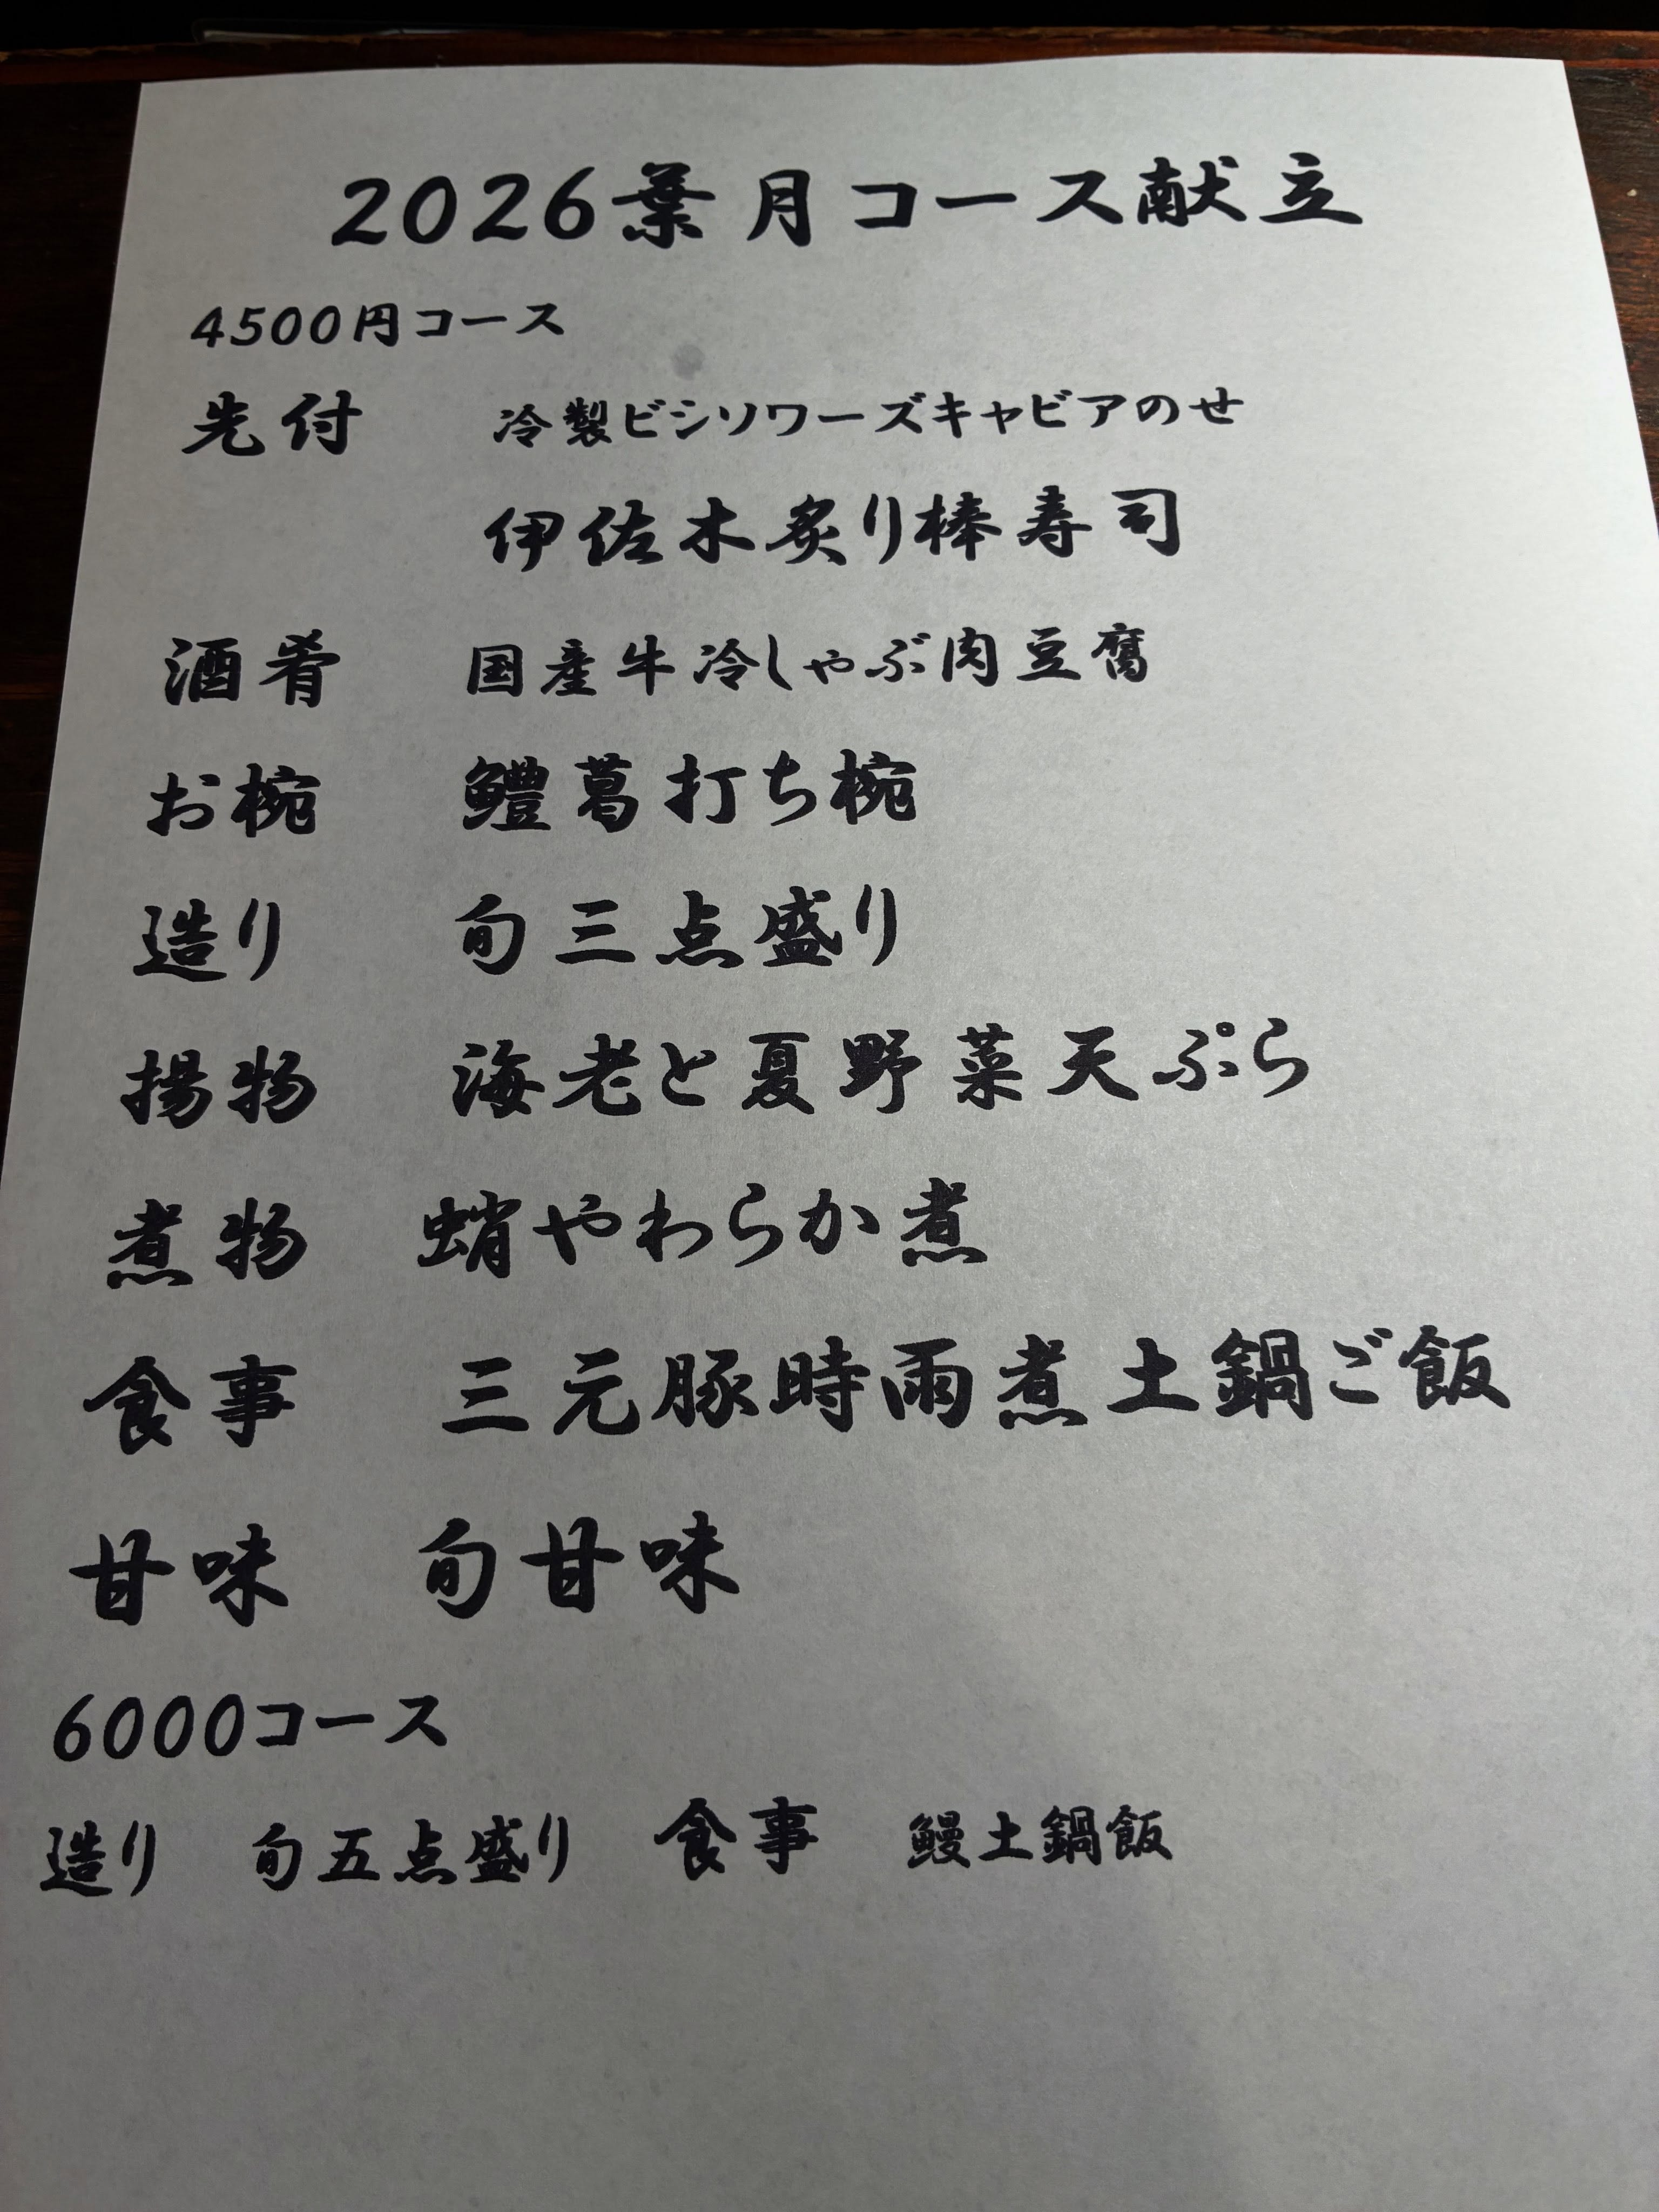 2026葉月コース献立
4500円コース
先付 冷製ビシソワーズキャビアのせ
伊佐木炙り棒寿司
酒肴 国産牛冷しゃぶ肉豆腐
お椀 鱧葛打ち椀
造り 旬三点盛り
揚物 海老と夏野菜天ぷら
煮物 蛸やわらか煮
食事 三元豚時雨煮土鍋ご飯
甘味 旬甘味
6000コース
造り 旬五点盛り 食事 鰻土鍋飯